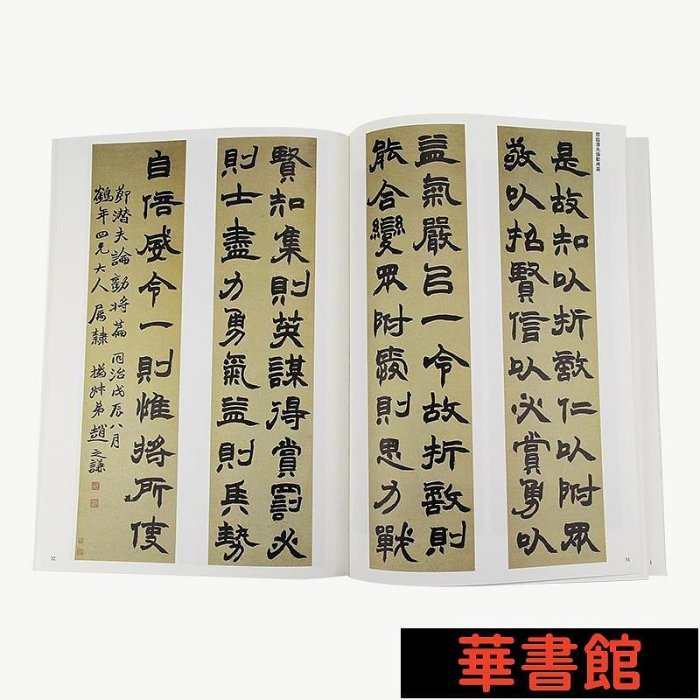 是故知以折敵仁以附眾
敬以招賢信以必賞勇以
益氣嚴㠯一令故折敵則
能合變眾附愛則思力戰
賢知集則英謀得賞罰必
則士盡力勇氣益則兵勢
自倍威令一則惟將所使
節潛夫論勸將篇 同治戊辰八月
鶴年四兄大人屬隸 撝叔弟趙之謙
52
51
華書館